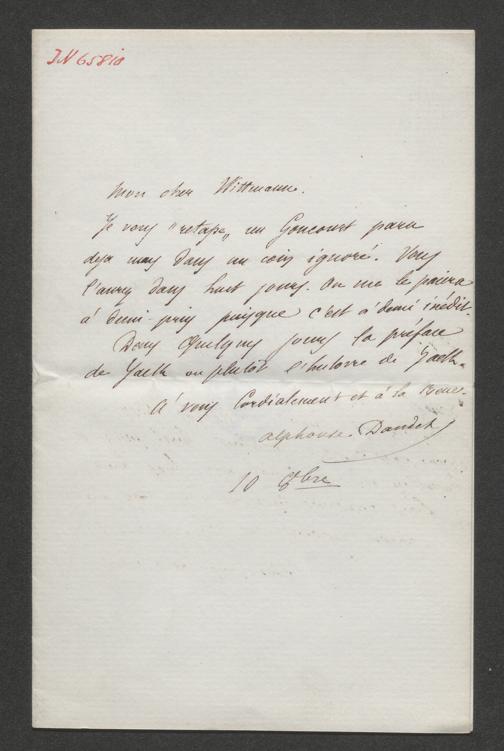 IN 65810
Mon cher Wittmann.
Je vous "retape" un Goncourt paru
déjà mais dans un coin ignoré. Vous
l'aurez dans huit jours. On me le paiera
à demi-prix puisque c'est à demi inédit.
Dans quelques jours la préface
de Jack ou plutôt l'histoire de Jack.
A vous cordialement et à la
Alphonse Daudet
10 8bre